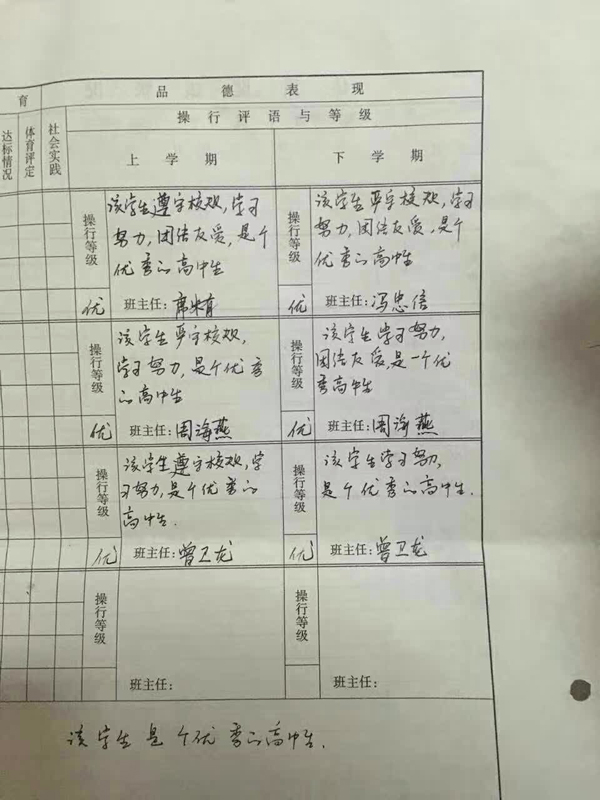 育
品德表现
操行评语与等级
达标情况
体育评定
社会实践
上学期
下学期
操行等级
优
该学生遵守校规,学习
努力,团结友爱,是个
优秀的高中生
班主任:
操行等级
优
该学生严守校规,学习
努力,团结友爱,是个
优秀的高中生
班主任:冯忠信
操行等级
优
该学生严守校规,
学习努力,是个优秀
的高中生
班主任:周海燕
操行等级
优
该学生学习努力,
团结友爱,是一个优
秀高中生
班主任:周海燕
操行等级
优
该学生遵守校规,学
习努力,是个优秀的
高中生.
班主任:曾卫龙
操行等级
优
该学生学习努力,
是个优秀的高中生.
班主任:曾卫龙
操行等级
班主任:
操行等级
班主任:
该学生是个优秀的高中生.